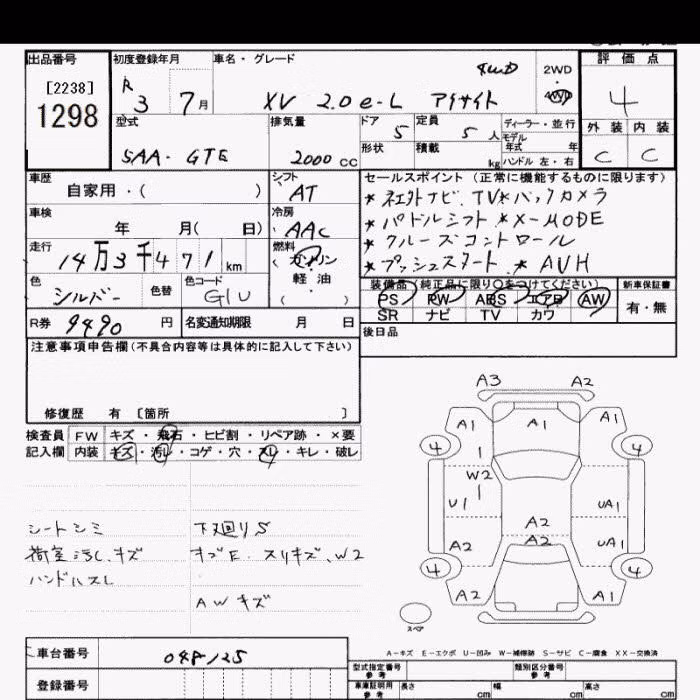 出品番号 初度登録年月 車名・グレード 評価点
[2238] 1298
R 3 7月 XV 2.0 e-L アイサイト 4WD 2WD 4WD 4
型式 排気量 ドア 定員 ディーラー・並行 外装 内装
SAA-GTE 2000cc 5 5人 モデル年式 年 C C
形状 積載 kg ハンドル 左・右
車歴 自家用・( ) シフト AT
セールスポイント(正常に機能するものに限ります)
*社外ナビ、TV *バックカメラ
*パドルシフト *X-MODE
*クルーズコントロール
*プッシュスタート *AVH
車検 年 月( 日) 冷房 AAC
走行 14万3千471km 燃料 ガソリン 軽油 ( )
色 シルバー 色替 色コード G1U
装備品(純正品に限り○をつけてください) 新車保証書
PS PW ABS エアB AW 有・無
SR ナビ TV カワ
R券 9490円 名変通知期限 月 日
後日品
注意事項申告欄(不具合内容等は具体的に記入して下さい)
修復歴 有 [箇所 ]
検査員 FW キズ・飛石・ヒビ割・リペア跡・×要
記入欄 内装 キズ・汚れ・コゲ・穴・スレ・キレ・破レ
シートシミ 下廻りS
荷室汚れ、キズ スリキズ、W2
ハンドルスレ
AWキズ
A3 A2
A1 A1 A1
4 1 4
W2
U1 1 UA1
A2
A2 A2 UA1
4 4
A2 A1
スペア
A-キズ E-エクボ U-凹み W-補修跡 S-サビ C-腐食 XX-交換済
車台番号 048125
登録番号
型式指定番号 参考 類別区分番号 参考
車庫証明用 参考 長さ cm 幅 cm 高さ cm